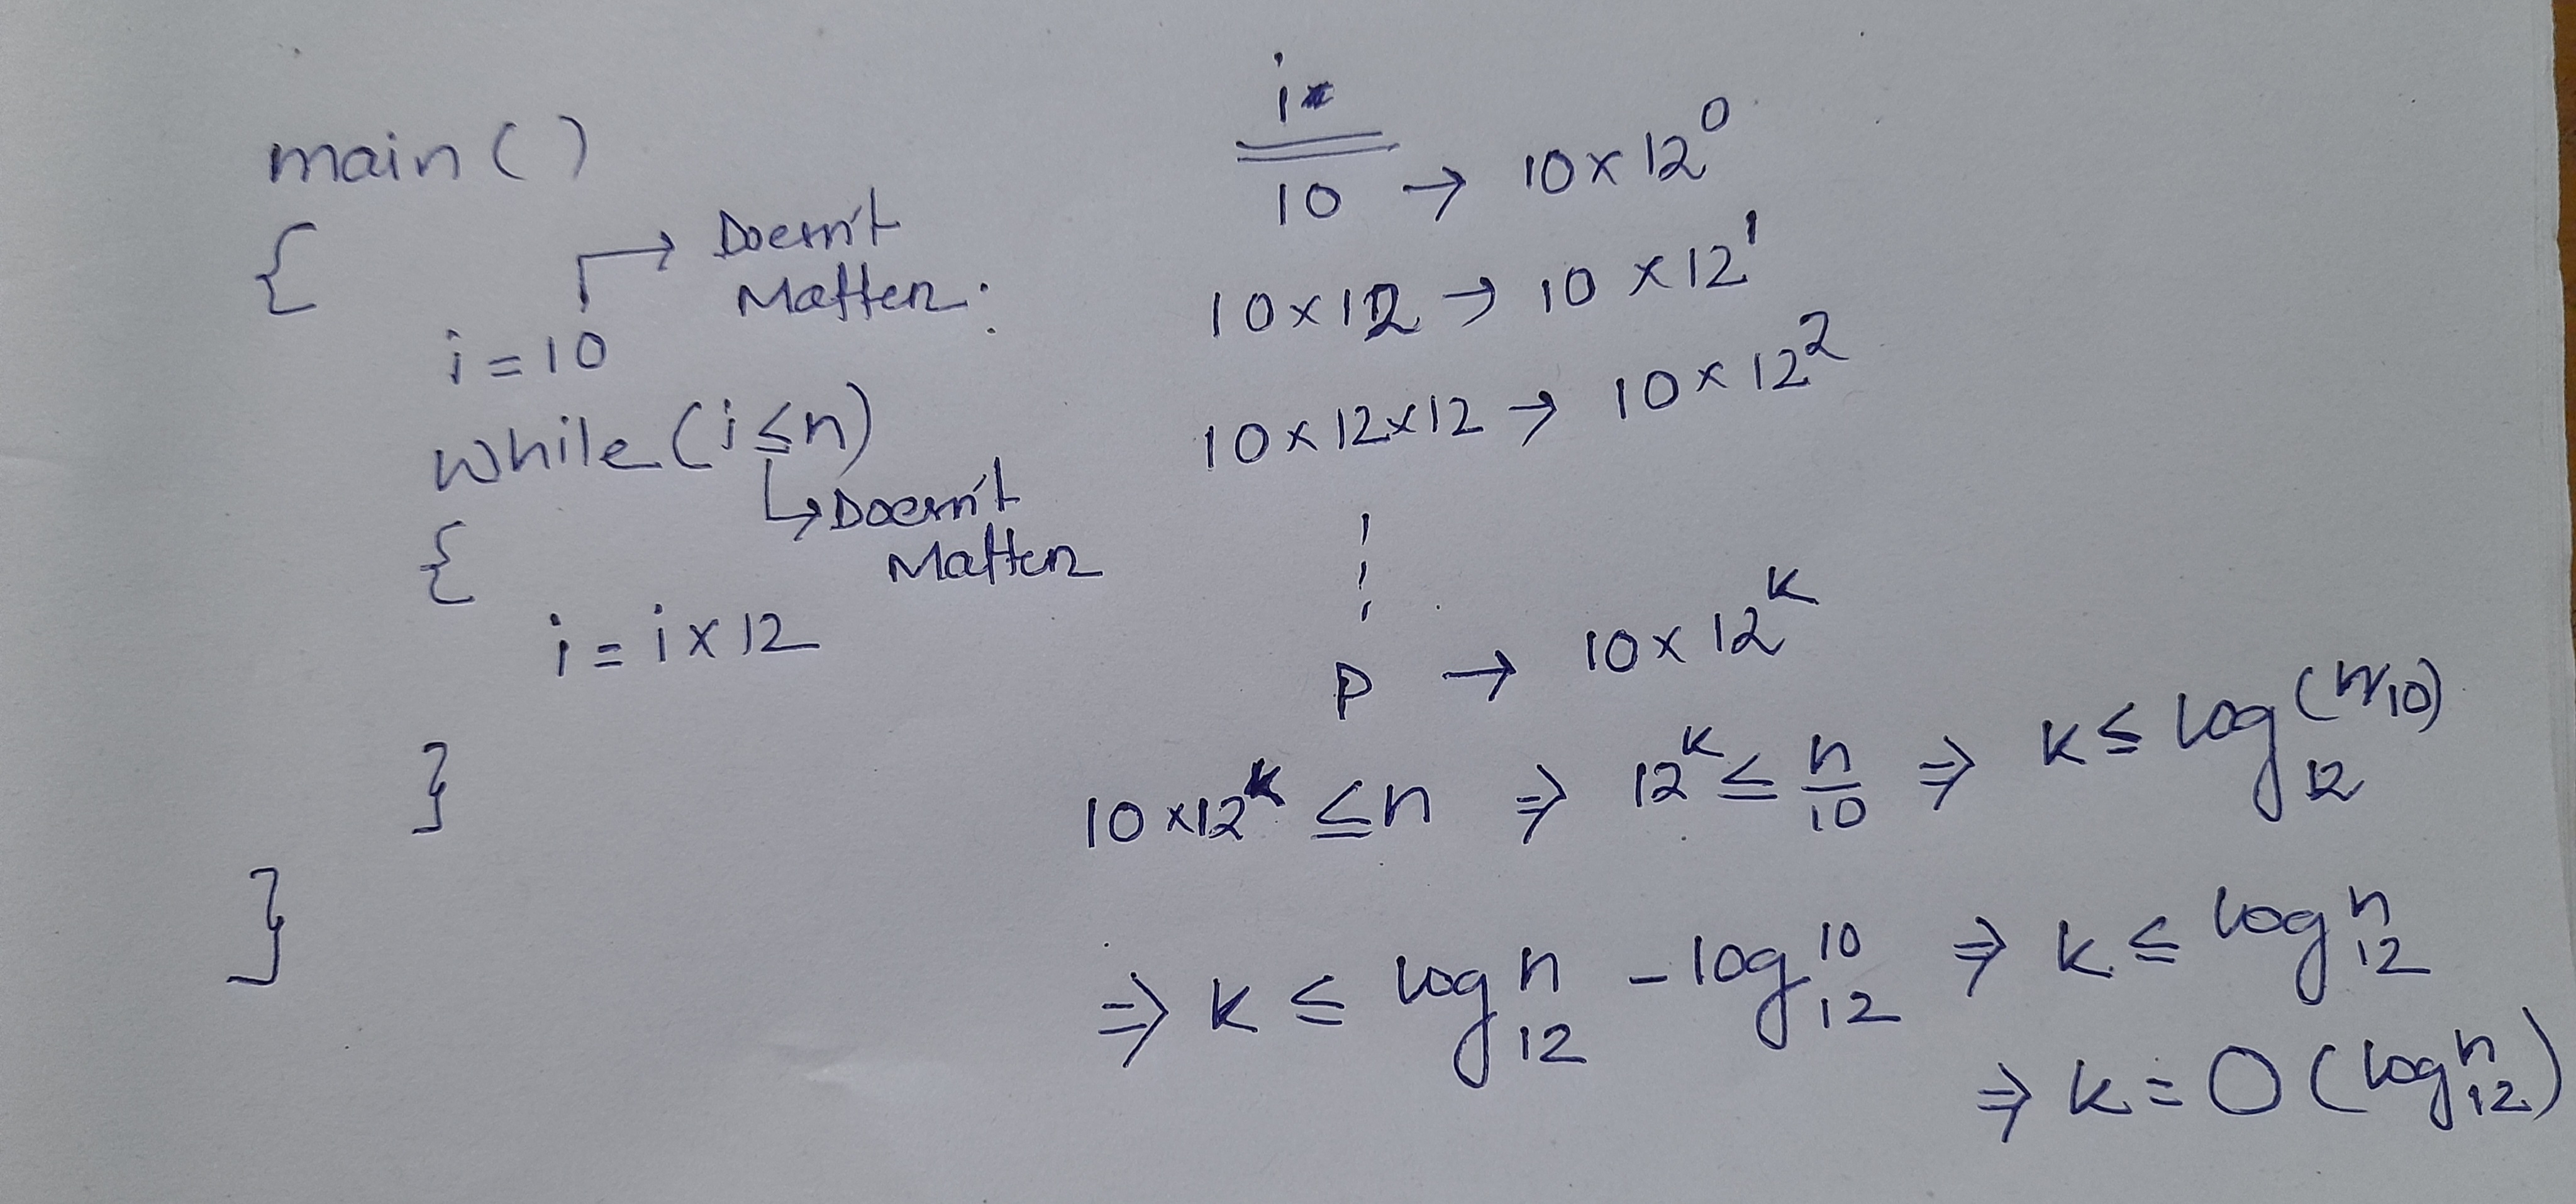 main()
{
→ Doesn't
Matter.
i = 10
while (i ≤ n)
↳ Doesn't
Matter
{
i = i × 12
}
}
i
10 → 10 × 12⁰
10 × 12 → 10 × 12¹
10 × 12 × 12 → 10 × 12²
P → 10 × 12ᴷ
10 × 12ᴷ ≤ n ⇒ 12ᴷ ≤ n/10 ⇒ K ≤ log₁₂(n/10)
⇒ K ≤ log₁₂ n − log₁₂ 10 ⇒ K ≤ log₁₂ n
⇒ K = O(log₁₂ n)